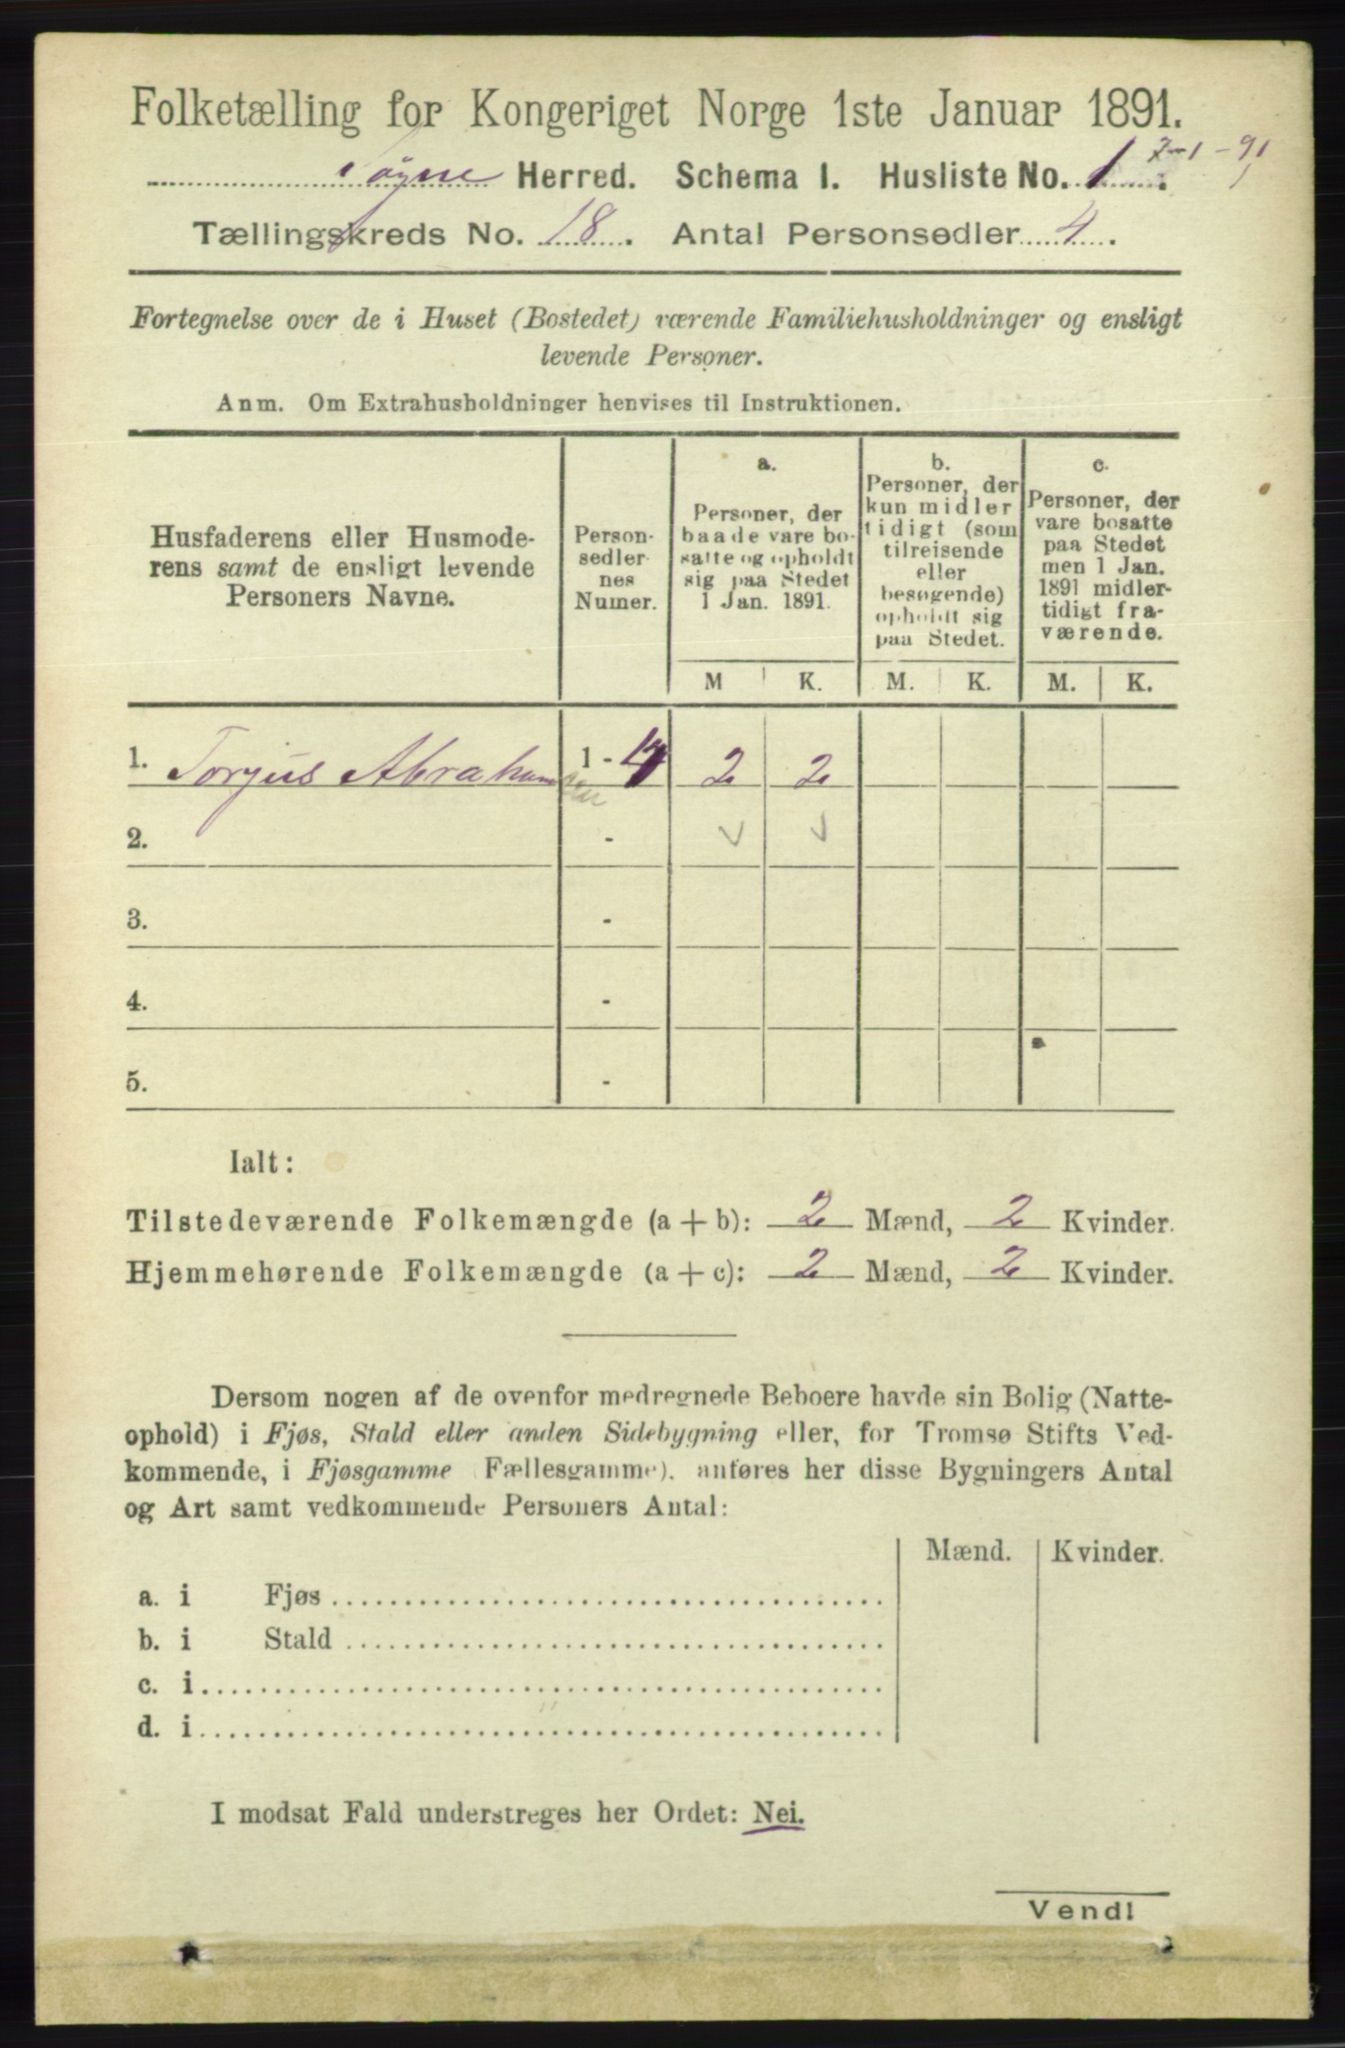 Folketælling for Kongeriget Norge 1ste Januar 1891.
7-1-91
Søgne Herred. Schema I. Husliste No. 1.
Tællingskreds No. 18. Antal Personsedler 4.
Fortegnelse over de i Huset (Bostedet) værende Familiehusholdninger og ensligt
levende Personer.
Anm. Om Extrahusholdninger henvises til Instruktionen.
Husfaderens eller Husmode-
rens samt de ensligt levende
Personers Navne.
Person-
sedler-
nes
Numer.
a.
Personer, der
baade vare bo-
satte og opholdt
sig paa Stedet
1 Jan. 1891.
b.
Personer, der
kun midler
tidigt (som
tilreisende
eller
besøgende)
opholdt sig
paa Stedet.
c.
Personer, der
vare bosatte
paa Stedet
men 1 Jan.
1891 midler-
tidigt fra-
værende.
M K. M. K. M. K.
1. Torjus Abrahamsen 1 - 4 2 2
2. -
3. -
4. -
5. -
Ialt:
Tilstedeværende Folkemængde (a + b): 2 Mænd, 2 Kvinder.
Hjemmehørende Folkemængde (a + c): 2 Mænd, 2 Kvinder.
Dersom nogen af de ovenfor medregnede Beboere havde sin Bolig (Natte-
ophold) i Fjøs, Stald eller anden Sidebygning eller, for Tromsø Stifts Ved-
kommende, i Fjøsgamme Fællesgamme), anføres her disse Bygningers Antal
og Art samt vedkommende Personers Antal:
Mænd. Kvinder.
a. i Fjøs
b. i Stald
c. i
d. i
I modsat Fald understreges her Ordet: Nei.
Vend!